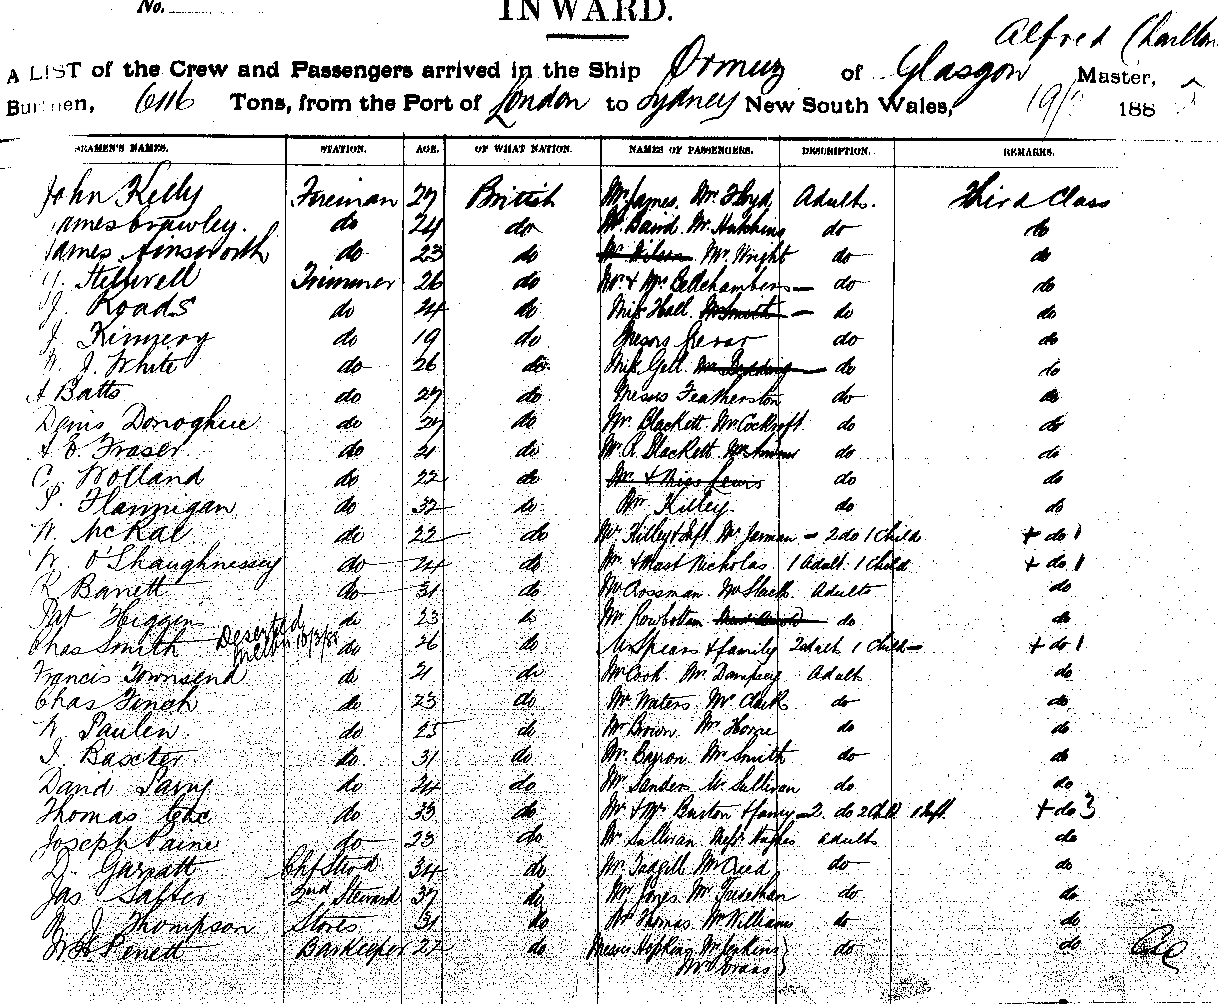 No.
INWARD.
Alfred Charlton
A LIST of the Crew and Passengers arrived in the Ship Ormuz of Glasgow Master,
Burthen, 6116 Tons, from the Port of London to Sydney New South Wales, 188
SEAMEN'S NAMES. STATION. AGE. OF WHAT NATION. NAMES OF PASSENGERS. DESCRIPTION. REMARKS.
John Kelly Fireman 27 British Mr James. Mr Floyd Adult. Third Class
James Crawley. do 24 do Mr Baird. Mr Hutchins do do
James Ainsworth do 23 do Mr Wilson Mr Wright do do
Stillwell Trimmer 26 do Mr & Mrs Bellchambers — do do
J. Roads do 24 do Miss Hall. Mr Smith — do do
J. Kinnery do 19 do Messrs do do
W. J. White do 26 do Miss Gell. do do
A Batts do 27 do Messrs Featherston do do
Denis Donoghue do 27 do Mr Blackett. Mr Cockroft do do
A E. Fraser do 21 do Mr R. Blackett. do do
C. Wolland do 22 do Mr & Miss Lewis do do
P. Flannigan do 32 do Mr Killey. do do
W. McKae do 22 do Mr Killey & Inft. Mr Jarman — 2 do 1 Child + do 1
W. O'Shaughnessey do 24 do Mr & Mast Nicholas. 1 Adult. 1 Child + do 1
R Barrett do 31 do Mr Crossman. Mr Slack Adults do
Pat Higgins do 23 do Mr Rowbottom do do
Chas Smith Deserted Melbn 10/3/88 do 26 do Mr Spears & family 2 adult 1 Child — + do 1
Francis Townsend do 21 do Mr Cook. Mr Dempsey Adult do
Chas Finch do 23 do Mr Waters Mr Clark do do
W Paulen do 25 do Mr Brown. Mr Horne do do
J. Baxter do 31 do Mr Barron. Mr Smith do do
David Parry do 24 do Mr Sanders Mr Sullivan do do
Thomas do 33 do Mr & Mrs Burton & family — 2 do 2 Chld 1 Inft. + do 3
Joseph Paine do 23 do Mr Sullivan. Messrs Hughes adults do
D. Garratt Chf Stwd 34 do Mr Tadgill Mr Creed do do
Jas Salter 2nd Steward 37 do Mr Jones. Mr Tresethan do do
W. J. Thompson Stores 31 do Mr Thomas. Mr Williams do do
W H Penett Barkeeper 22 do Messrs Hopkins Mr Jenkins do do
Mr Evans